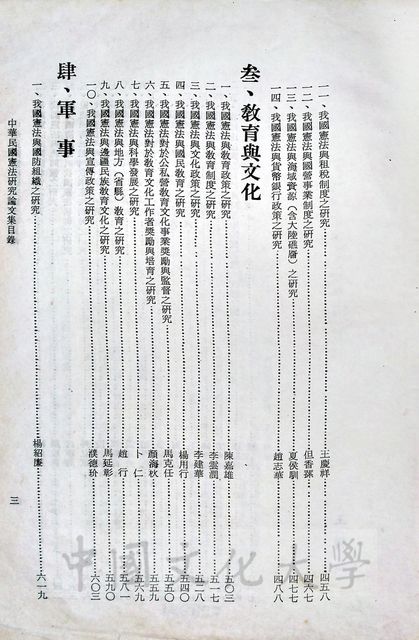 一一、我國憲法與租稅制度之研究……王慶祥……四五八
一二、我國憲法與國營事業制度之研究……但香蓀……四六七
一三、我國憲法與海域資源（含大陸礁層）之研究……夏侯馴……四七七
一四、我國憲法與貨幣銀行政策之研究……趙志華……四八八
叁、教育與文化
一、我國憲法與教育政策之研究……陳嘉雄……五〇三
二、我國憲法與教育制度之研究……李雲潤……五一七
三、我國憲法與文化政策之研究……李建華……五二八
四、我國憲法與國民教育之研究……楊用行……五四〇
五、我國憲法對於公私營教育文化事業獎勵與監督之研究……馬克任……五五〇
六、我國憲法對於教育文化工作者獎勵與培育之研究……顏海秋……五五九
七、我國憲法與科學發展之研究……卜仁……五六九
八、我國憲法與地方（省縣）教育之研究……趙行……五八一
九、我國憲法與邊疆民族教育文化之研究……馬延彰……五九〇
一〇、我國憲法與宣傳政策之研究……濮德玠……六〇三
肆、軍事
一、我國憲法與國防組織之研究……楊紹慶……六一九
中華民國憲法研究論文集目錄
三
中國文化大學